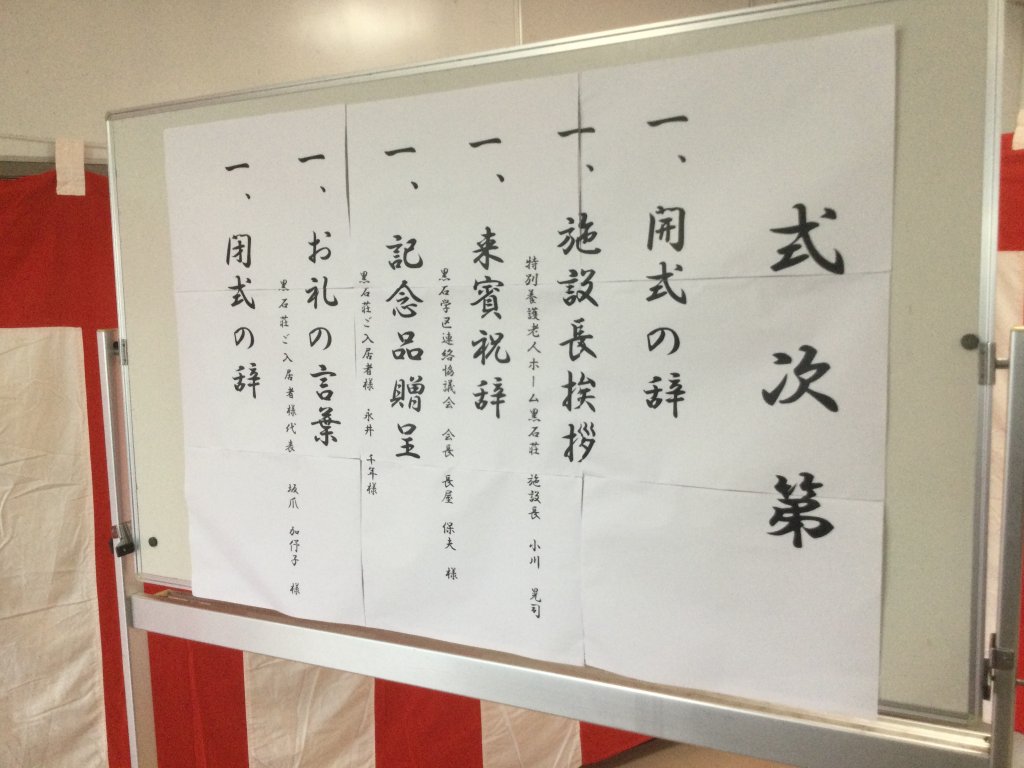 式次第
一、開式の辞
一、施設長挨拶
特別養護老人ホーム黒石荘 施設長 小川 晃司
一、来賓祝辞
黒石学区連絡協議会 会長 長屋 保夫 様
一、記念品贈呈
黒石荘ご入居者様 永井 千年様
一、お礼の言葉
黒石荘ご入居者様代表 坂爪 加伃子 様
一、閉式の辞